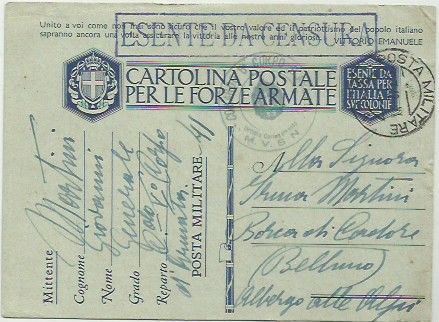 Unito a voi come non mai sono sicuro che il vostro valore ed il patriottismo del popolo italiano
sapranno ancora una volta assicurare la vittoria alle nostre armi gloriose.
VITTORIO EMANUELE
ESENTE DA CENSURA
CARTOLINA POSTALE
PER LE FORZE ARMATE
ESENTE DA
TASSA PER
L'ITALIA E
SUE COLONIE
POSTA MILITARE
M.V.S.N.
Mittente
Cognome Martini
Nome Giovanni
Grado Generale
Reparto
POSTA MILITARE 41
Alla Signora
Irma Martini
Borca di Cadore
(Belluno)
Albergo alle Alpi